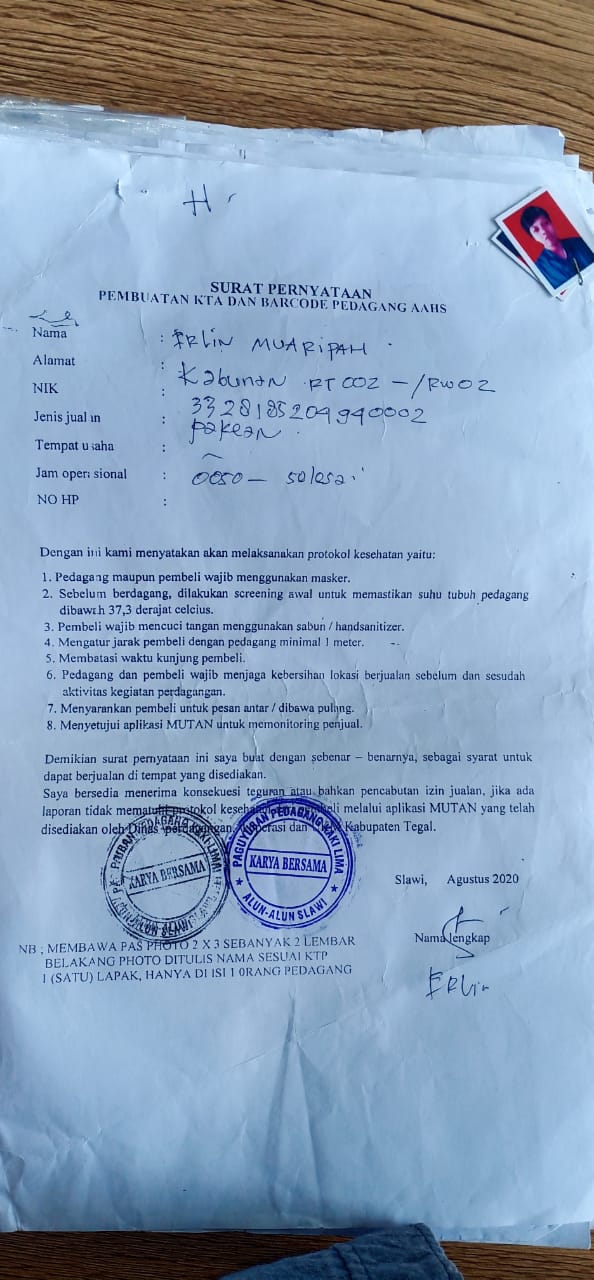 H
SURAT PERNYATAAN
PEMBUATAN KTA DAN BARCODE PEDAGANG AAHS
Nama : ERLIN MUARIPAH
Alamat : Kabunan RT 002 - /RW 02
NIK : 3328185204940002
Jenis jualan : pakean
Tempat usaha :
Jam operasional : 0050 - selesai
NO HP :
Dengan ini kami menyatakan akan melaksanakan protokol kesehatan yaitu:
1. Pedagang maupun pembeli wajib menggunakan masker.
2. Sebelum berdagang, dilakukan screening awal untuk memastikan suhu tubuh pedagang
dibawah 37,3 derajat celcius.
3. Pembeli wajib mencuci tangan menggunakan sabun / handsanitizer.
4. Mengatur jarak pembeli dengan pedagang minimal 1 meter.
5. Membatasi waktu kunjung pembeli.
6. Pedagang dan pembeli wajib menjaga kebersihan lokasi berjualan sebelum dan sesudah
aktivitas kegiatan perdagangan.
7. Menyarankan pembeli untuk pesan antar / dibawa pulang.
8. Menyetujui aplikasi MUTAN untuk memonitoring penjual.
Demikian surat pernyataan ini saya buat dengan sebenar – benarnya, sebagai syarat untuk
dapat berjualan di tempat yang disediakan.
Saya bersedia menerima konsekuesi teguran atau bahkan pencabutan izin jualan, jika ada
laporan tidak mematuhi protokol kesehatan pembeli melalui aplikasi MUTAN yang telah
disediakan oleh Dinas perdagangan, Koperasi dan UKM Kabupaten Tegal.
PAGUYUBAN PEDAGANG KAKI LIMA
KARYA BERSAMA
ALUN-ALUN SLAWI
PAGUYUBAN PEDAGANG KAKI LIMA
KARYA BERSAMA
ALUN-ALUN SLAWI
Slawi, Agustus 2020
Nama lengkap
ERLin
NB ; MEMBAWA PAS PHOTO 2 X 3 SEBANYAK 2 LEMBAR
BELAKANG PHOTO DITULIS NAMA SESUAI KTP
1 (SATU) LAPAK, HANYA DI ISI 1 0RANG PEDAGANG